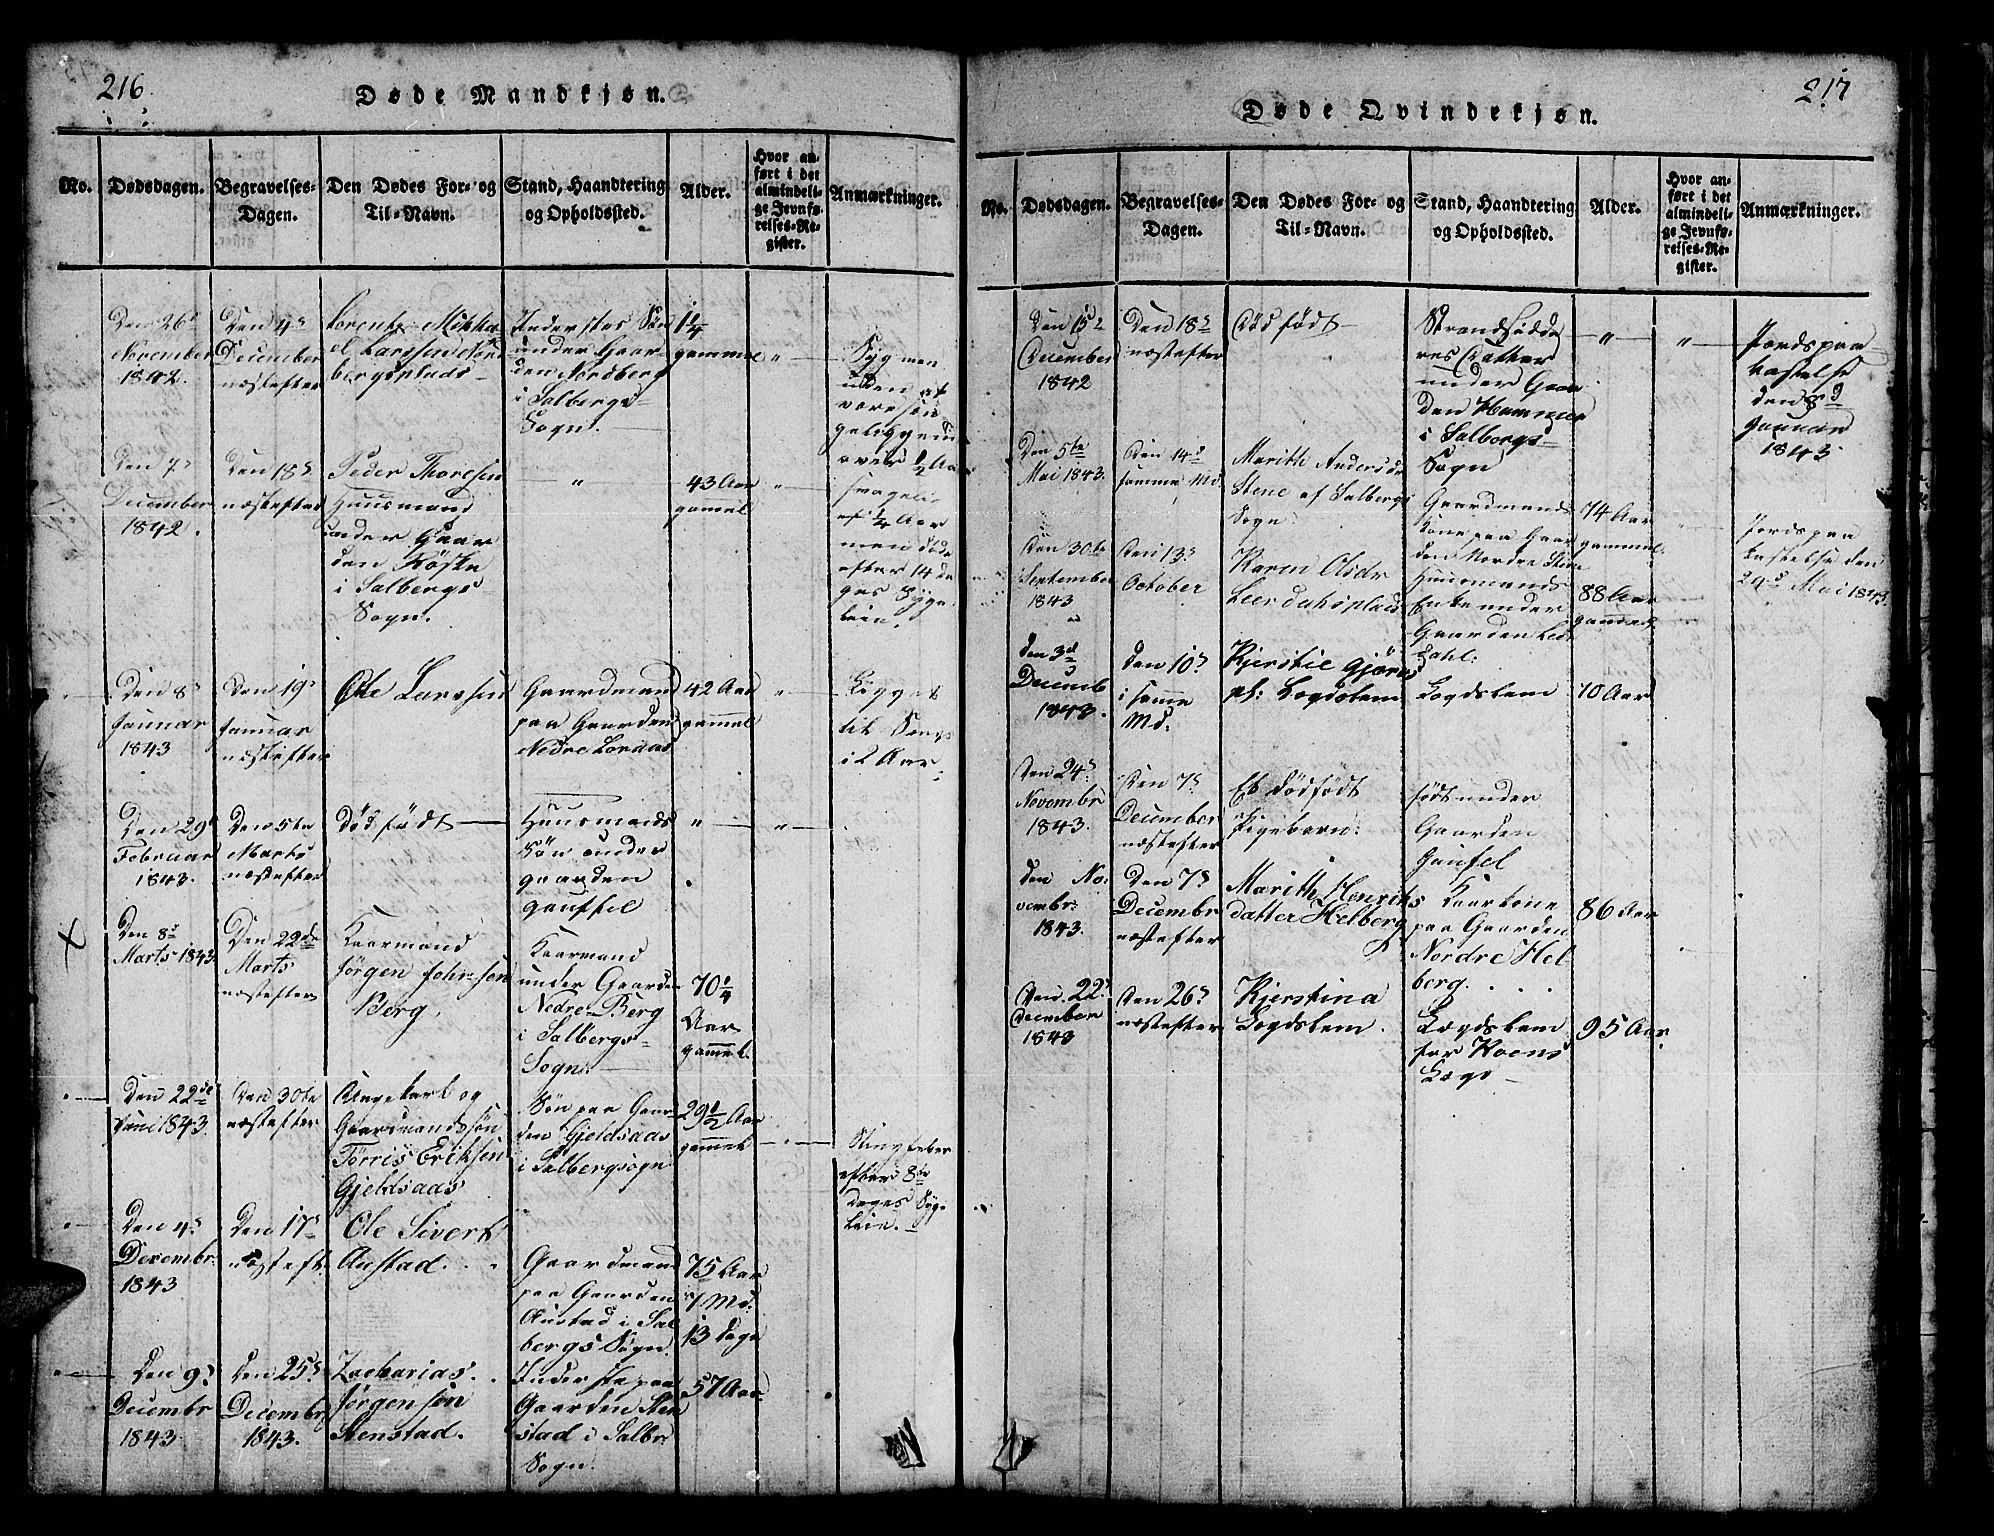 216.
Døde Mandkjøn.
No.
Dødsdagen.
Begravelses-
Dagen.
Den Dødes For- og
Til-Navn.
Stand, Haandtering
og Opholdssted.
Alder.
Hvor an-
ført i det
almindeli-
ge Jevnfø-
relses-Re-
gister.
Anmærkninger.
Den 26de
November
1842.
Den 4de
December
næstefter
Lorentz Mikka
el Larssen Nord
bergsplads
Inderstes Søn
under Gaar-
den Nordberg
i Salbergs-
Sogn.
1¼
gammel
Syg men
uden at
være sen
geliggend
over ½ Aa
Den 7de
December
1842.
Den 18de
næstefter
Peder Thoresen
Huusmand
under Gaar
den Røske
i Salbergs-
Sogn.
43 Aar
gammel
svageli
af ¼ Aar
men døde
efter 14 da
ges Syge
leie.
Den 8de
Januar
1843
Den 19de
Januar
næstefter
Ole Larssen
Gaardmand
paa Gaarden
Nedre Loraas
42 Aar
gammel
Ligget
til Sengs
i 2 Aar.
Den 29de
Februar
1843.
Den 5te
Marts
næstefter
Dødfødt
Huusmands
Søn under
gaarden
gauffel
Den 8de
Marts 1843.
Den 22de
Marts
næstefter
Kaarmand
Jørgen Johnsen
Berg.
Kaarmand
under Gaarde
Nedre-Berg
i Salbergs-
Sogn.
70¼
Aar
gammel.
Den 22de
Juni 1843.
Den 30te
næstefter
Ungekarl og
Gaardmandssøn
Tørris Eriksen
Gjeldsaas
Søn paa Gaar-
den Gjeldsaas
i Salbergsogn
29½ Aar
gammel
efter 8te
Dages Syge
leie.
Den 4de
Decembr.
1843
Den 17de
næsteft.
Ole Sivert
Austad.
Gaardmand
paa Gaarden
Austad i Sal
bergs Sogn.
75 Aar
7 Md.
13 Dage
Den 9de
Decembr
1843
Den 25de
Decembr
1843.
Zacharias
Jørgensen
Stenstad.
Inderste paa
Gaarden Sten
stad i Salbr.
Sogn.
57 Aar
217
Døde Qvindekjøn.
No.
Dødsdagen.
Begravelses-
Dagen.
Den Dødes For- og
Til-Navn.
Stand, Haandtering
og Opholdssted.
Alder.
Hvor an-
ført i det
almindeli-
ge Jevnfø-
relses-Re-
gister.
Anmærkninger.
Den 15de
December
1842
Den 18de
næstefter
Dødfødt
Strandsidde
res Datter
under Gaar
den Hammer
i Salbergs-
Sogn
Jordspaa-
kastelse
den 8d
Januar
1843.
Den 5te
Mai 1843.
Den 14de
samme Md.
Marith Andersdr
Stene af Salbergs
Sogn.
Gaardmands
Kone paa Gaar
den Nordre Sten
74 Aar
gammel.
Jordspaa
kastelse den
29de Mai 1843.
Den 30te
September
1843
Den 13de
October
Karen Olsdr
Leerdahlsplads
Huusmands
Enke under
Gaarden Leer
Dahl.
88 Aar
gammel.
Den 3d
Decemb
1843.
Den 10de
i samme
Md.
Kjerstie
pl: Lægdslem
Lægdslem
70 Aar
Den 24de
Novembr
1843.
Den 7de
December
næstefter
Et dødfødt
Pigebarn.
født under
Gaarden
Gaufel
Den No-
vembr.
1843.
Den 7de
Decembr
næstefter
Marith Henriks
datter Helberg
Kaarkone
paa Gaarden
Nordre Hel
berg.
86 Aar
Den 22de
December
1843
Den 26de
næstefter
Kjerstina
Lægdslem.
Lægdslem
for Koens
Lægd
95 Aar.